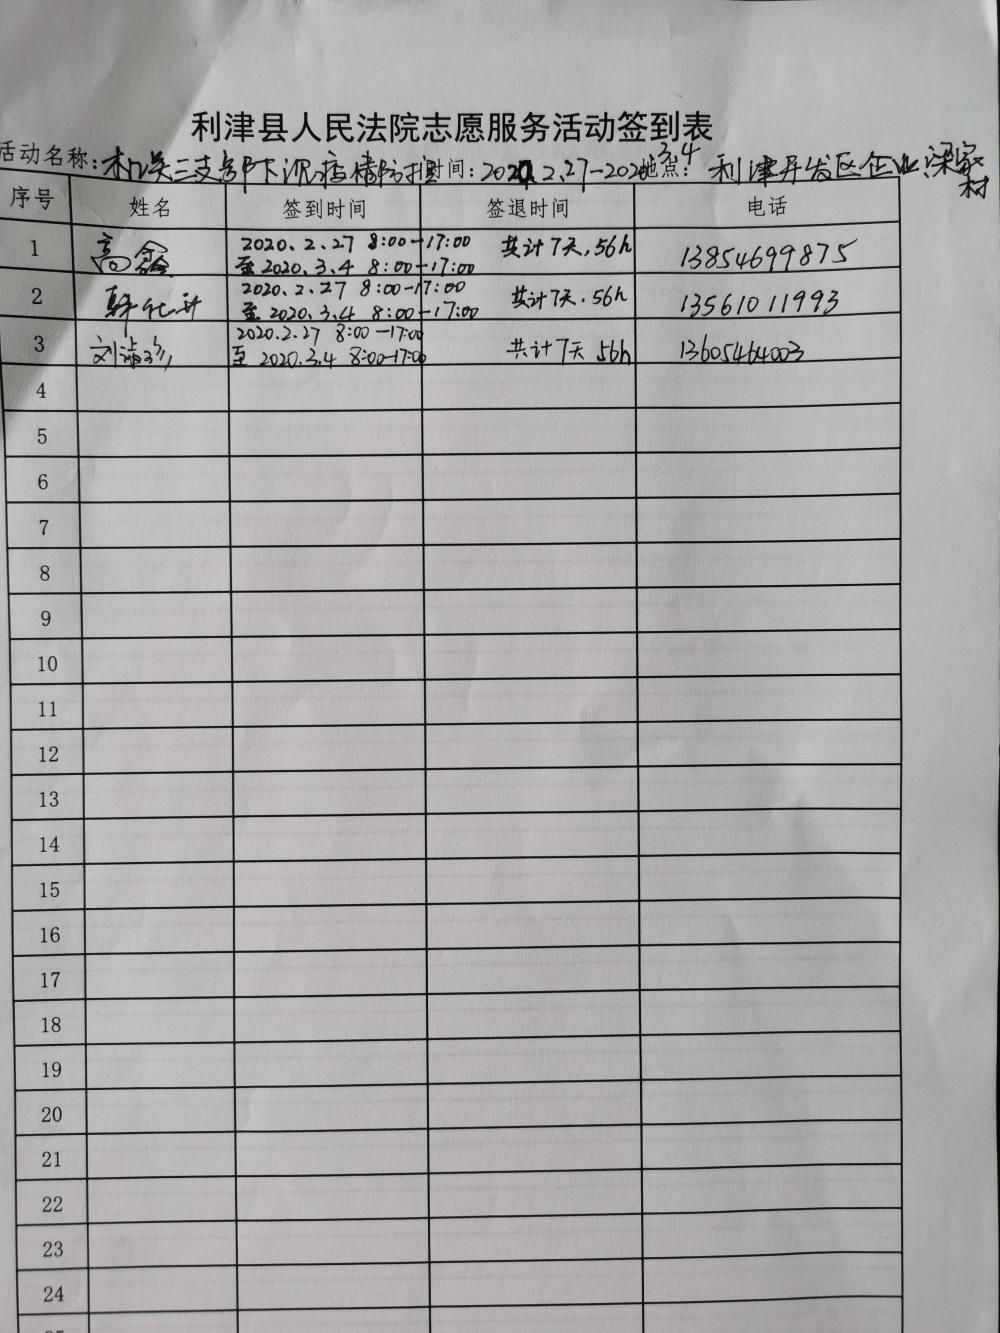 利津县人民法院志愿服务活动签到表
活动名称：机关三支部下沉疫情防控 时间：2020.2.27-2020.3.4 地点：利津开发区企业、梁家村
序号 姓名 签到时间 签退时间 电话
1 高鑫 2020.2.27 8:00-17:00 共计7天，56h 13854699875
至2020.3.4 8:00-17:00
2 2020.2.27 8:00-17:00 共计7天.56h 13561011993
至2020.3.4 8:00-17:00
3 刘 2020.2.27 8:00-17:00 共计7天 56h 13605464003
至 2020.3.4 8:00-17:00
4
5
6
7
8
9
10
11
12
13
14
15
16
17
18
19
20
21
22
23
24